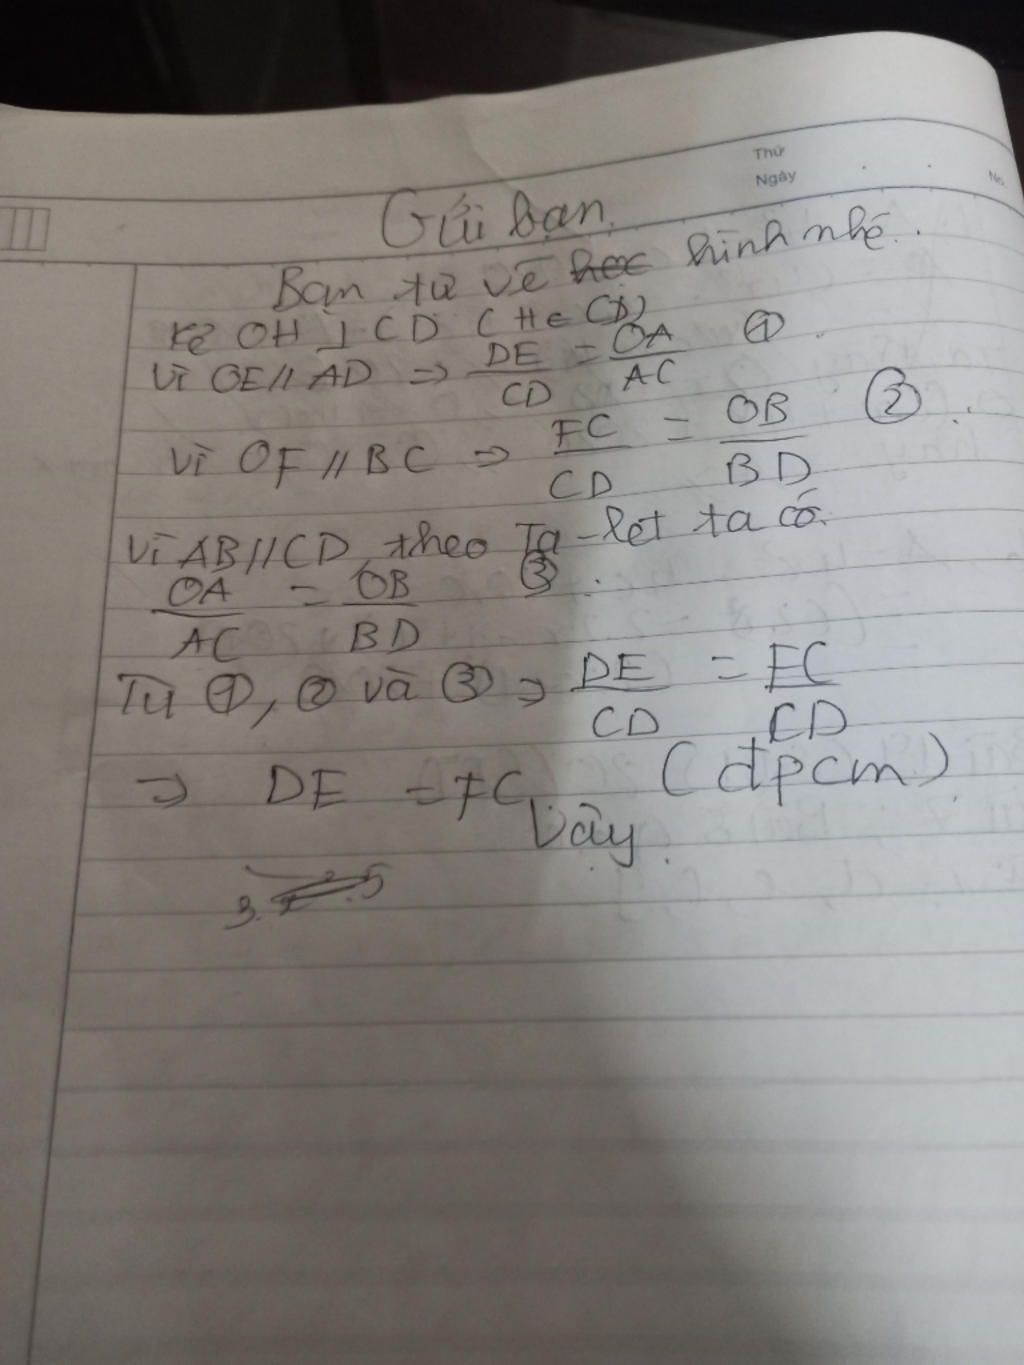 Thứ
Ngày
No.
Gửi bạn.
Bạn tự vẽ hình nhé.
Kẻ OH ⊥ CD (H ∈ CD)
Vì OE // AD ⇒ DE/CD = OA/AC ①
Vì OF // BC ⇒ FC/CD = OB/BD ②
Vì AB // CD, theo Ta-lét ta có
OA/AC = OB/BD ③.
Từ ①, ② và ③ ⇒ DE/CD = FC/CD
⇒ DE = FC (đpcm)
Vậy.